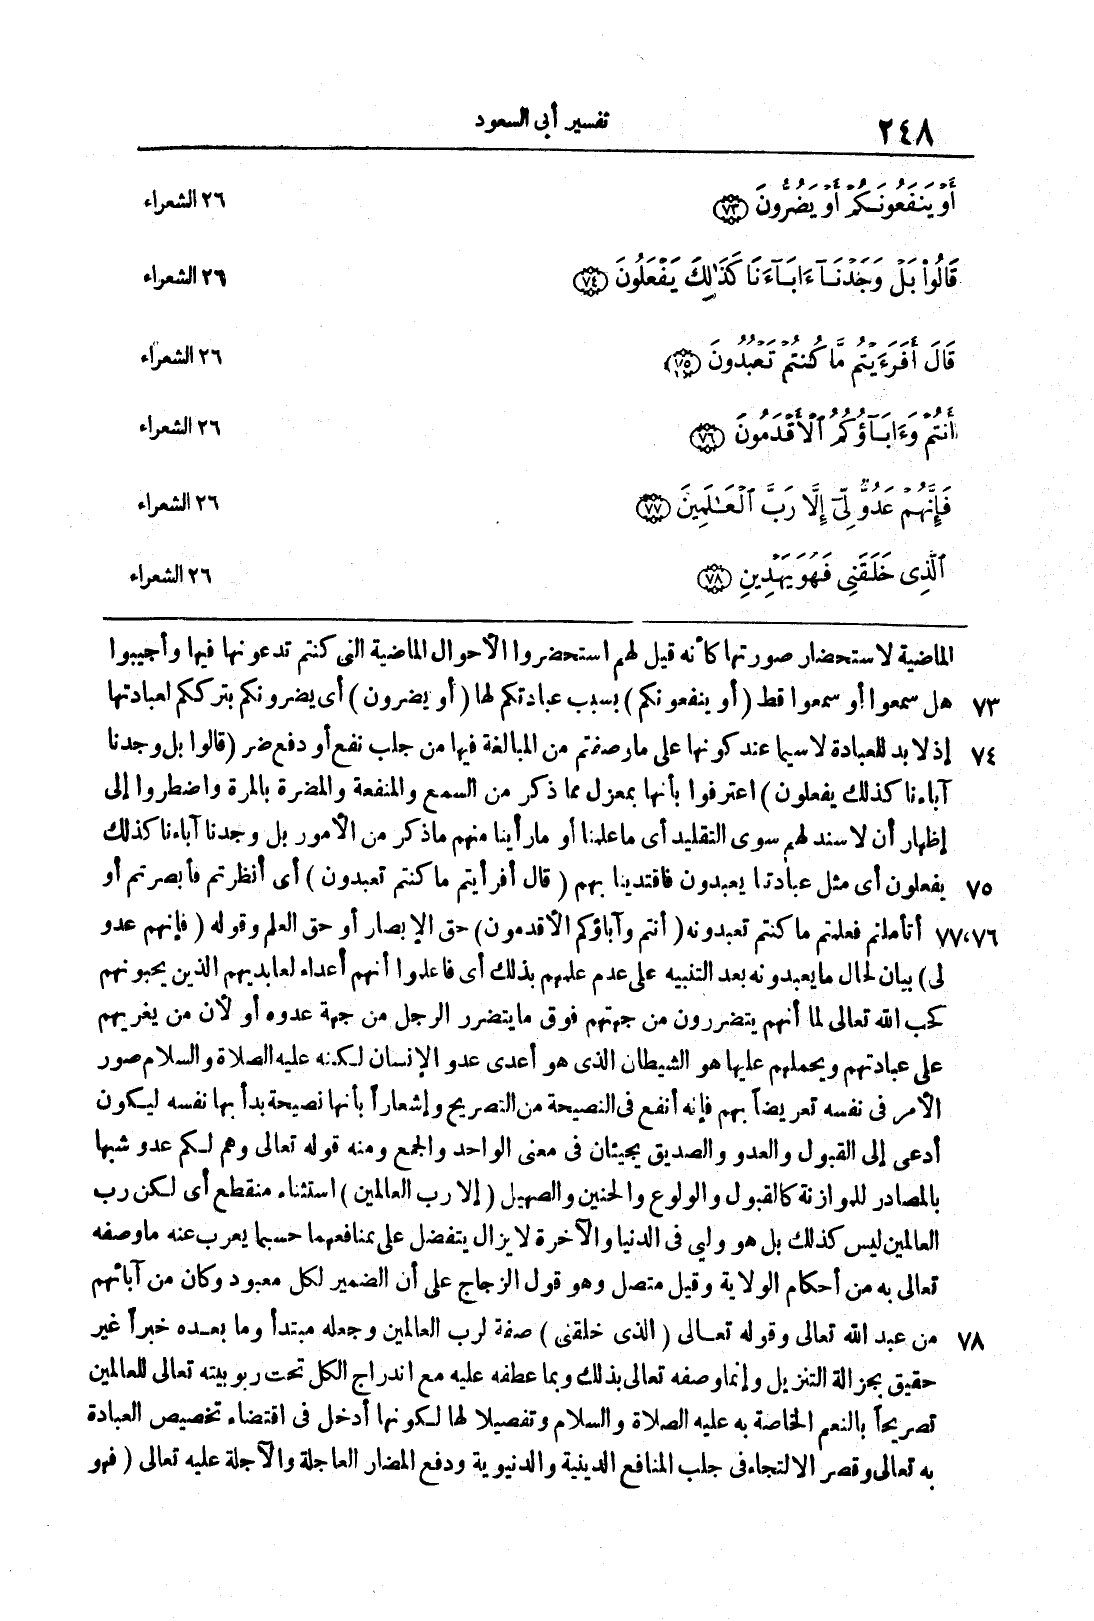 ٢٤٨ تفسير أبى السعود
أَوْ يَنفَعُونَكُمْ أَوْ يَضُرُّونَ ﴿٧٣﴾ ٢٦ الشعراء
قَالُوا۟ بَلْ وَجَدْنَآ ءَابَآءَنَا كَذَٰلِكَ يَفْعَلُونَ ﴿٧٤﴾ ٢٦ الشعراء
قَالَ أَفَرَءَيْتُم مَّا كُنتُمْ تَعْبُدُونَ ﴿٧٥﴾ ٢٦ الشعراء
أَنتُمْ وَءَابَآؤُكُمُ ٱلْأَقْدَمُونَ ﴿٧٦﴾ ٢٦ الشعراء
فَإِنَّهُمْ عَدُوٌّ لِّىٓ إِلَّا رَبَّ ٱلْعَٰلَمِينَ ﴿٧٧﴾ ٢٦ الشعراء
ٱلَّذِى خَلَقَنِى فَهُوَ يَهْدِينِ ﴿٧٨﴾ ٢٦ الشعراء
الماضية لاستحضار صورتها كأنه قيل لهم استحضروا الأحوال الماضية التى كنتم تدعونها فيها وأجيبوا
٧٣ هل سمعوا أو سمعوا قط ( أو ينفعونكم ) بسبب عبادتكم لها ( أو يضرون ) أى يضرونكم بترككم لعبادتها
٧٤ إذ لا بد للعبادة لا سيما عند كونها على ما وصفتم من المبالغة فيها من جلب نفع أو دفع ضر ( قالوا بل وجدنا
آباءنا كذلك يفعلون ) اعترفوا بأنها بمعزل مما ذكر من السمع والمنفعة والمضرة بالمرة واضطروا إلى
إظهار أن لا سند لهم سوى التقليد أى ما علمنا أو ما رأينا منهم ما ذكر من الأمور بل وجدنا آباءنا كذلك
٧٥ يفعلون أى مثل عبادتنا يعبدون فاقتدينا بهم ( قال أفرأيتم ما كنتم تعبدون ) أى أنظرتم فأبصرتم أو
٧٧،٧٦ أتأملتم فعلمتم ما كنتم تعبدونه ( أنتم وآباؤكم الأقدمون ) حق الإبصار أو حق العلم وقوله ( فإنهم عدو
لى ) بيان لحال ما يعبدونه بعد التنبيه على عدم علمهم بذلك أى فاعلموا أنهم أعداء لعابديهم الذين يحبونهم
كحب الله تعالى لما أنهم يتضررون من جهتهم فوق ما يتضرر الرجل من جهة عدوه أو لأن من يغريهم
على عبادتهم ويحملهم عليها هو الشيطان الذى هو أعدى عدو الإنسان لكنه عليه الصلاة والسلام صور
الأمر فى نفسه تعريضاً بهم فإنه أنفع فى النصيحة من التصريح وإشعاراً بأنها نصيحة بدأ بها نفسه ليكون
أدعى إلى القبول والعدو والصديق يجيئان فى معنى الواحد والجمع ومنه قوله تعالى وهم لكم عدو شبها
بالمصادر للموازنة كالقبول والولوع والحنين والصهيل ( إلا رب العالمين ) استثناء منقطع أى لكن رب
العالمين ليس كذلك بل هو وليي فى الدنيا والآخرة لا يزال يتفضل على بمنافعهما حسبما يعرب عنه ما وصفه
تعالى به من أحكام الولاية وقيل متصل وهو قول الزجاج على أن الضمير لكل معبود وكان من آبائهم
٧٨ من عبد الله تعالى وقوله تعالى ( الذى خلقنى ) صفة لرب العالمين وجعله مبتدأ وما بعده خبراً غير
حقيق بجزالة التنزيل وإنما وصفه تعالى بذلك وبما عطفه عليه مع اندراج الكل تحت ربوبيته تعالى للعالمين
تصريحاً بالنعم الخاصة به عليه الصلاة والسلام وتفصيلا لها لكونها أدخل فى اقتضاء تخصيص العبادة
به تعالى وقصر الالتجاء فى جلب المنافع الدينية والدنيوية ودفع المضار العاجلة والآجلة عليه تعالى ( فهو